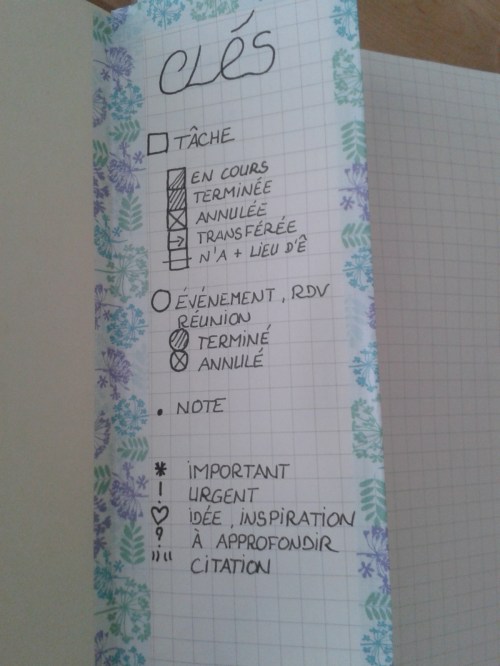 CLÉS
TÂCHE
EN COURS
TERMINÉE
ANNULÉE
TRANSFÉRÉE
N'A + LIEU D'Ê
ÉVÉNEMENT, RDV
RÉUNION
TERMINÉ
ANNULÉ
• NOTE
* IMPORTANT
! URGENT
♡ IDÉE, INSPIRATION
? À APPROFONDIR
"" CITATION